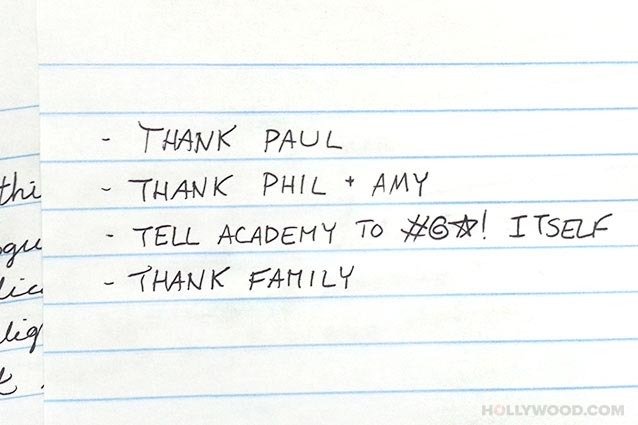 - THANK PAUL
- THANK PHIL + AMY
- TELL ACADEMY TO #@☆! ITSELF
- THANK FAMILY
HOLLYWOOD.COM